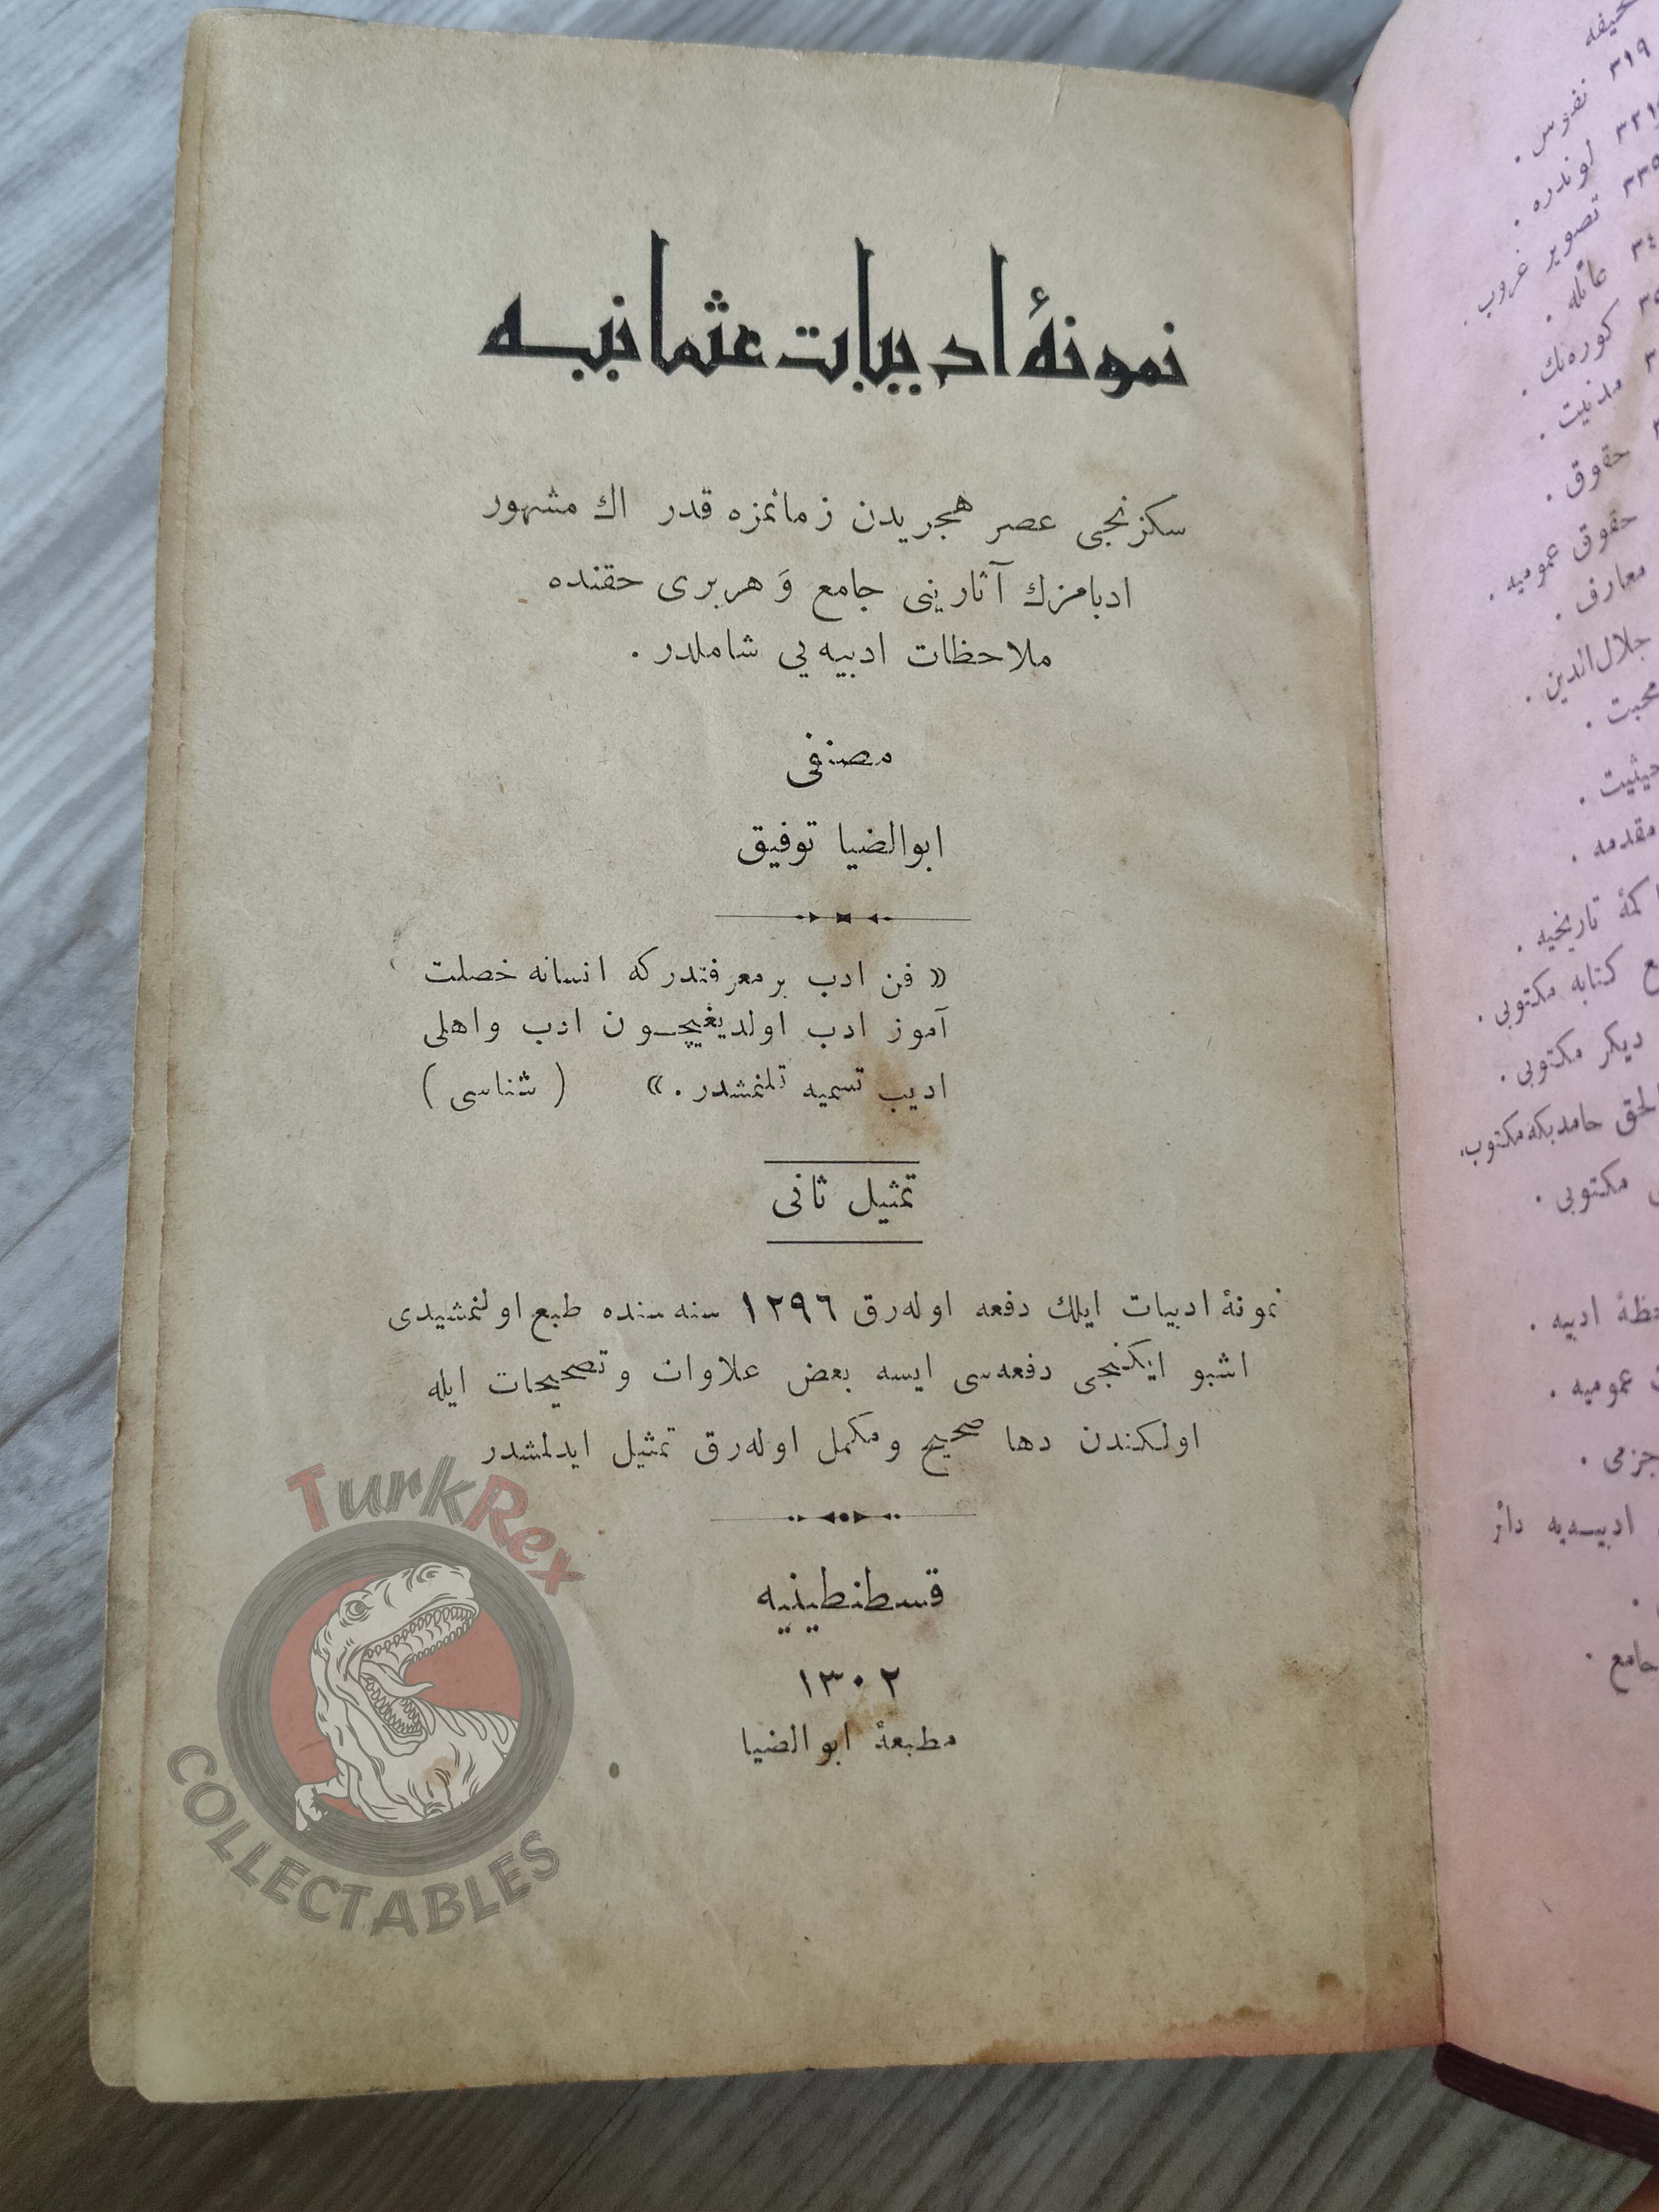 نمونهٔ ادبیات عثمانیه
سكزنجی عصر هجریدن زمانمزه قدر اك مشهور
ادبامزك آثارینی جامع وَ هربری حقنده
ملاحظات ادبیه یی شاملدر .
مصنفی
ابوالضیا توفیق
« فن ادب بر معرفتدر كه انسانه خصلت
آموز ادب اولدیغیچـون ادب واهلی
ادیب تسمیه قلنمشدر . » ( شناسی )
تمثیل ثانی
نمونهٔ ادبیات ایلك دفعه اوله‌رق ١٢٩٦ سنه سنده طبع اولنمشیدی
اشبو ایكنجی دفعه‌سی ایسه بعض علاوات و تصحیحات ایله
اولكندن دها صحیح و مكمل اوله‌رق تمثیل ایدلمشدر
قسطنطینیه
١٣٠٢
مطبعهٔ ابوالضیا
TurkRex
COLLECTABLES
٣١٩ نفوس .
لوندره .
تصویر غروب .
عائله .
كوره‌نك .
مدنیت .
حقوق .
حقوق عمومیه .
معارف .
جلال‌الدین .
محبت .
حیثیت .
مقدمه .
تاریخیه .
كتابه مكتوبی .
دیكر مكتوبی .
حامدبكه مكتوب .
مكتوبی .
ادبیه .
عمومیه .
جزمی .
ادبیـه‌یه دائر
جامع .